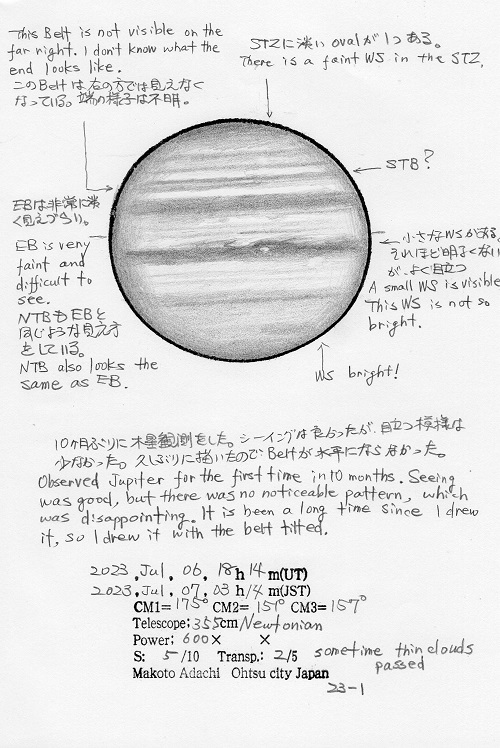 This Belt is not visible on the
far right. I don't know what the
end looks like.
このBeltは右の方では見えなく
なっている。端の様子は不明。
STZに淡いovalが1つある。
There is a faint WS in the STZ.
STB?
EBは非常に淡
く見えづらい。
EB is very
faint and
difficult to
see.
NTBもEBと
同じような見え方
をしている。
NTB also looks the
same as EB.
小さなWSがある。
それほど明るくない
が、よく目立つ
A small WS is visible
This WS is not so
bright.
WS bright!
10ヶ月ぶりに木星観測をした。シーイングは良かったが、目立つ模様は
少なかった。久しぶりに描いたのでBeltが水平にならなかった。
Observed Jupiter for the first time in 10 months. Seeing
was good, but there was no noticeable pattern, which
was disappointing. It is been a long time since I drew
it, so I drew it with the belt tilted.
2023, Jul, 06, 18h 14 m(UT)
2023, Jul, 07, 03 h 14 m(JST)
CM1= 175° CM2= 151° CM3= 157°
Telescope; 355cm Newtonian
Power; 600× ×
S: 5 /10 Transp.: 2/5 sometime thin clouds
passed
Makoto Adachi Ohtsu city Japan
23-1